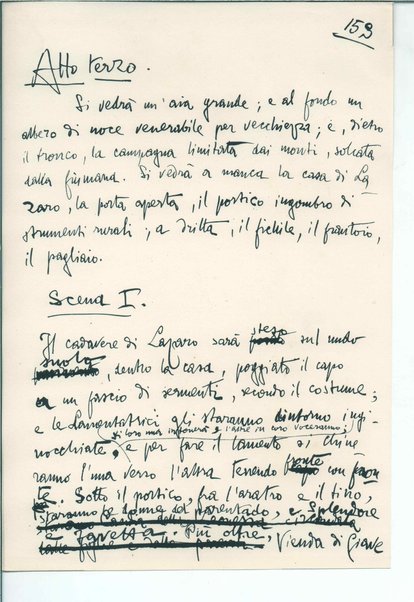 159
Atto terzo.
Si vedrà un'aia grande; e al fondo un
albero di noce venerabile per vecchiezza; e, dietro
il tronco, la campagna limitata dai monti, solcata
dalla fiumana. Si vedrà a manca la casa di La-
zaro, la porta aperta, il portico ingombro di
strumenti rurali; a dritta, il fienile, il frantoio,
il pagliaio.
Scena I.
Il cadavere di Lazaro sarà steso sul nudo
suolo, dentro la casa, poggiato il capo
a un fascio di sermenti, secondo il costume;
e le Lamentatrici gli staranno intorno ingi-
di loro una intonerà e l'altre in coro voceranno;
nocchiate, e per fare il lamento si chine
ranno l'una verso l'altra tenendo fronte con fron
te. Sotto il portico, fra l'aratro e il tino,
staranno le donne del parentado, e Splendore
e Favetta. Più oltre, Vienda di Giave